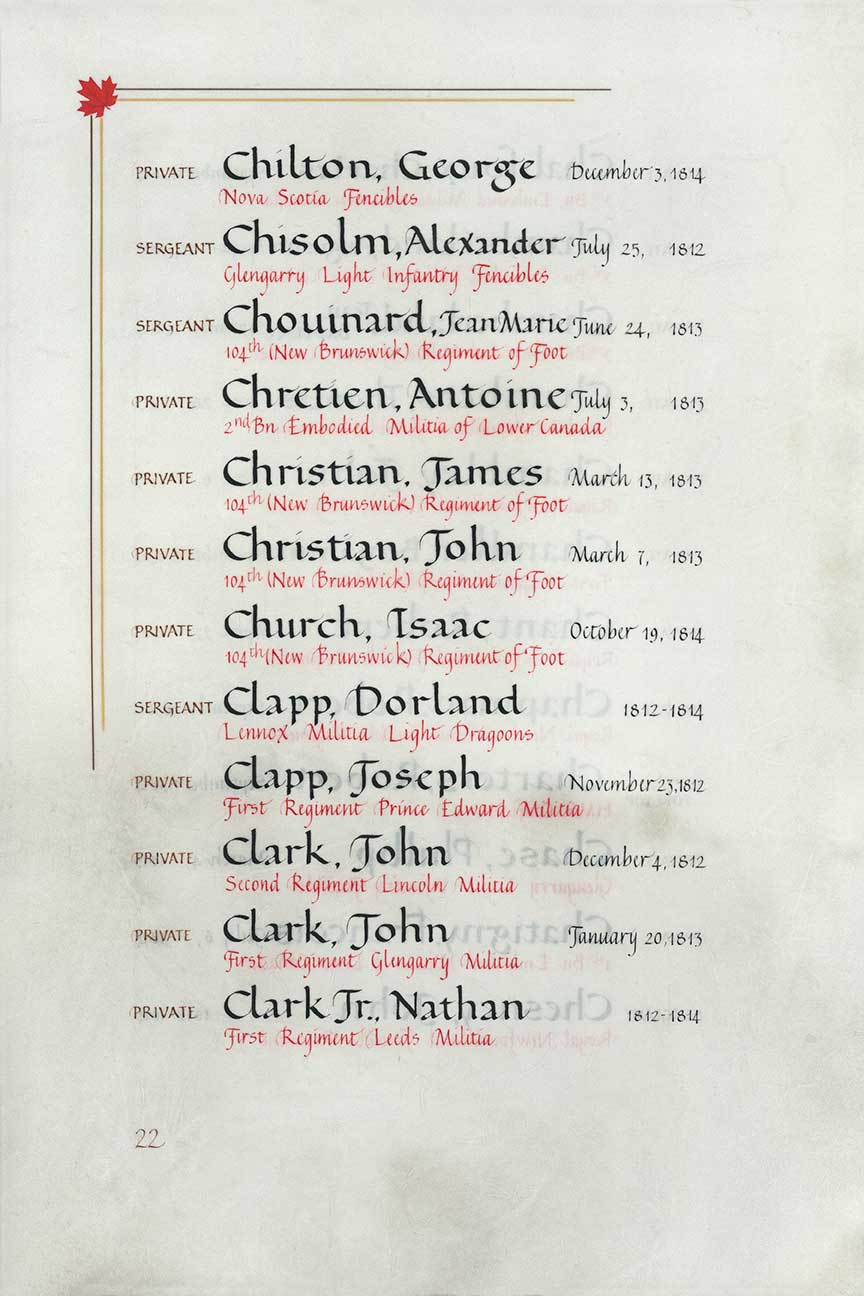 PRIVATE Chilton, George December 3, 1814
Nova Scotia Fencibles
SERGEANT Chisolm, Alexander July 25, 1812
Glengarry Light Infantry Fencibles
SERGEANT Chouinard, Jean Marie June 24, 1813
104th (New Brunswick) Regiment of Foot
PRIVATE Chretien, Antoine July 3, 1813
2nd Bn Embodied Militia of Lower Canada
PRIVATE Christian, James March 13, 1813
104th (New Brunswick) Regiment of Foot
PRIVATE Christian, John March 7, 1813
104th (New Brunswick) Regiment of Foot
PRIVATE Church, Isaac October 19, 1814
104th (New Brunswick) Regiment of Foot
SERGEANT Clapp, Dorland 1812-1814
Lennox Militia Light Dragoons
PRIVATE Clapp, Joseph November 23, 1812
First Regiment Prince Edward Militia
PRIVATE Clark, John December 4, 1812
Second Regiment Lincoln Militia
PRIVATE Clark, John January 20, 1813
First Regiment Glengarry Militia
PRIVATE Clark Jr., Nathan 1812-1814
First Regiment Leeds Militia
22